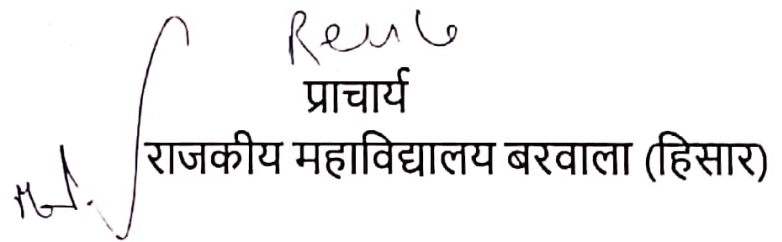 प्राचार्य
राजकीय महाविद्यालय बरवाला (हिसार)